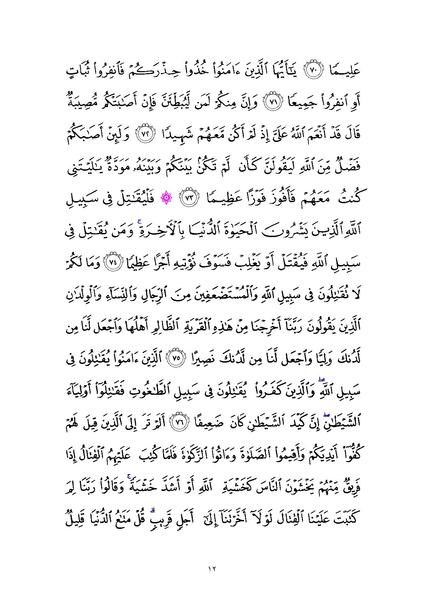 عَلِيمًا ٧٠ يَٰٓأَيُّهَا ٱلَّذِينَ ءَامَنُوا۟ خُذُوا۟ حِذْرَكُمْ فَٱنفِرُوا۟ ثُبَاتٍ
أَوِ ٱنفِرُوا۟ جَمِيعًا ٧١ وَإِنَّ مِنكُمْ لَمَن لَّيُبَطِّئَنَّ فَإِنْ أَصَٰبَتْكُم مُّصِيبَةٌ
قَالَ قَدْ أَنْعَمَ ٱللَّهُ عَلَىَّ إِذْ لَمْ أَكُن مَّعَهُمْ شَهِيدًا ٧٢ وَلَئِنْ أَصَٰبَكُمْ
فَضْلٌ مِّنَ ٱللَّهِ لَيَقُولَنَّ كَأَن لَّمْ تَكُنۢ بَيْنَكُمْ وَبَيْنَهُۥ مَوَدَّةٌ يَٰلَيْتَنِى
كُنتُ مَعَهُمْ فَأَفُوزَ فَوْزًا عَظِيمًا ٧٣ ۞ فَلْيُقَٰتِلْ فِى سَبِيلِ
ٱللَّهِ ٱلَّذِينَ يَشْرُونَ ٱلْحَيَوٰةَ ٱلدُّنْيَا بِٱلْءَاخِرَةِ ۚ وَمَن يُقَٰتِلْ فِى
سَبِيلِ ٱللَّهِ فَيُقْتَلْ أَوْ يَغْلِبْ فَسَوْفَ نُؤْتِيهِ أَجْرًا عَظِيمًا ٧٤ وَمَا لَكُمْ
لَا تُقَٰتِلُونَ فِى سَبِيلِ ٱللَّهِ وَٱلْمُسْتَضْعَفِينَ مِنَ ٱلرِّجَالِ وَٱلنِّسَآءِ وَٱلْوِلْدَٰنِ
ٱلَّذِينَ يَقُولُونَ رَبَّنَآ أَخْرِجْنَا مِنْ هَٰذِهِ ٱلْقَرْيَةِ ٱلظَّالِمِ أَهْلُهَا وَٱجْعَل لَّنَا مِن
لَّدُنكَ وَلِيًّا وَٱجْعَل لَّنَا مِن لَّدُنكَ نَصِيرًا ٧٥ ٱلَّذِينَ ءَامَنُوا۟ يُقَٰتِلُونَ فِى
سَبِيلِ ٱللَّهِ ۖ وَٱلَّذِينَ كَفَرُوا۟ يُقَٰتِلُونَ فِى سَبِيلِ ٱلطَّٰغُوتِ فَقَٰتِلُوٓا۟ أَوْلِيَآءَ
ٱلشَّيْطَٰنِ ۖ إِنَّ كَيْدَ ٱلشَّيْطَٰنِ كَانَ ضَعِيفًا ٧٦ أَلَمْ تَرَ إِلَى ٱلَّذِينَ قِيلَ لَهُمْ
كُفُّوٓا۟ أَيْدِيَكُمْ وَأَقِيمُوا۟ ٱلصَّلَوٰةَ وَءَاتُوا۟ ٱلزَّكَوٰةَ فَلَمَّا كُتِبَ عَلَيْهِمُ ٱلْقِتَالُ إِذَا
فَرِيقٌ مِّنْهُمْ يَخْشَوْنَ ٱلنَّاسَ كَخَشْيَةِ ٱللَّهِ أَوْ أَشَدَّ خَشْيَةً ۚ وَقَالُوا۟ رَبَّنَا لِمَ
كَتَبْتَ عَلَيْنَا ٱلْقِتَالَ لَوْلَآ أَخَّرْتَنَآ إِلَىٰٓ أَجَلٍ قَرِيبٍ ۗ قُلْ مَتَٰعُ ٱلدُّنْيَا قَلِيلٌ
١٢